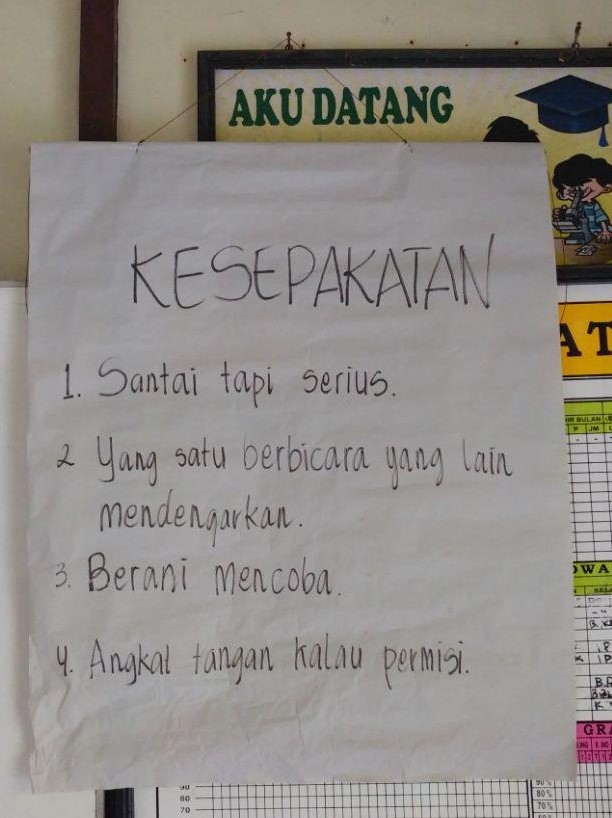 AKU DATANG
KESEPAKATAN
1. Santai tapi serius.
2 Yang satu berbicara yang lain
mendengarkan.
3. Berani mencoba.
4. Angkat tangan kalau permisi.
A T
P JM
GRA
90
80
70
90%
80%
70%